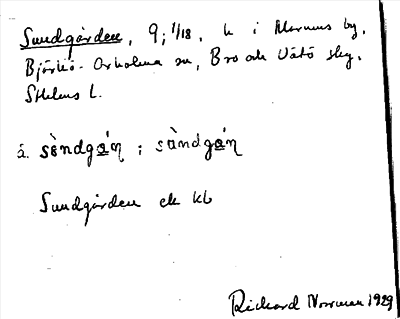 Sundgården, 9; 1/18, h i Marums by,
Björkö-Arholma sn, Bro och Vätö skg.
Sthlms l.
å. sʉ̀ndgɑ́ɳ ; sʉ̀ndgɑ́ɳ
Sundgården ek kb
Rickard Norrman 1929